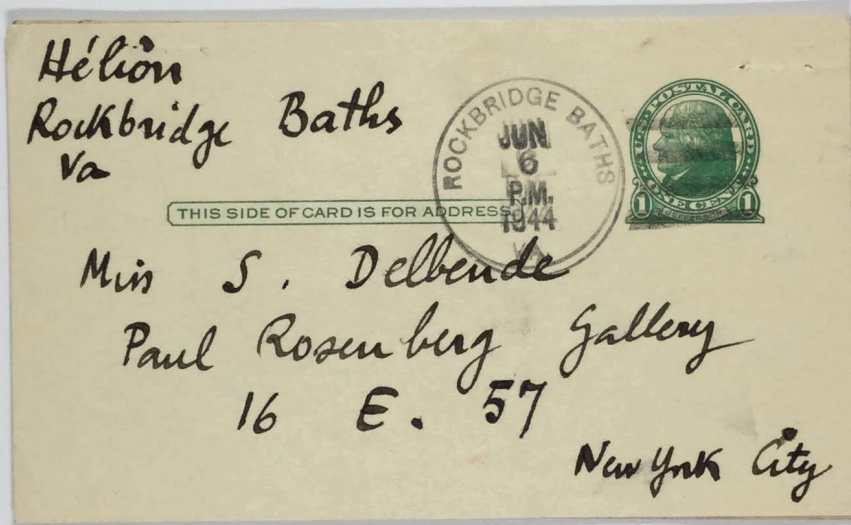 Hélion
Rockbridge Baths
Va
ROCKBRIDGE BATHS
JUN
6
P.M.
1944
VA.
U.S. POSTAL CARD
ONE CENT
1 JEFFERSON 1
THIS SIDE OF CARD IS FOR ADDRESS
Miss S. Delbende
Paul Rosenberg Gallery
16 E. 57
New York City